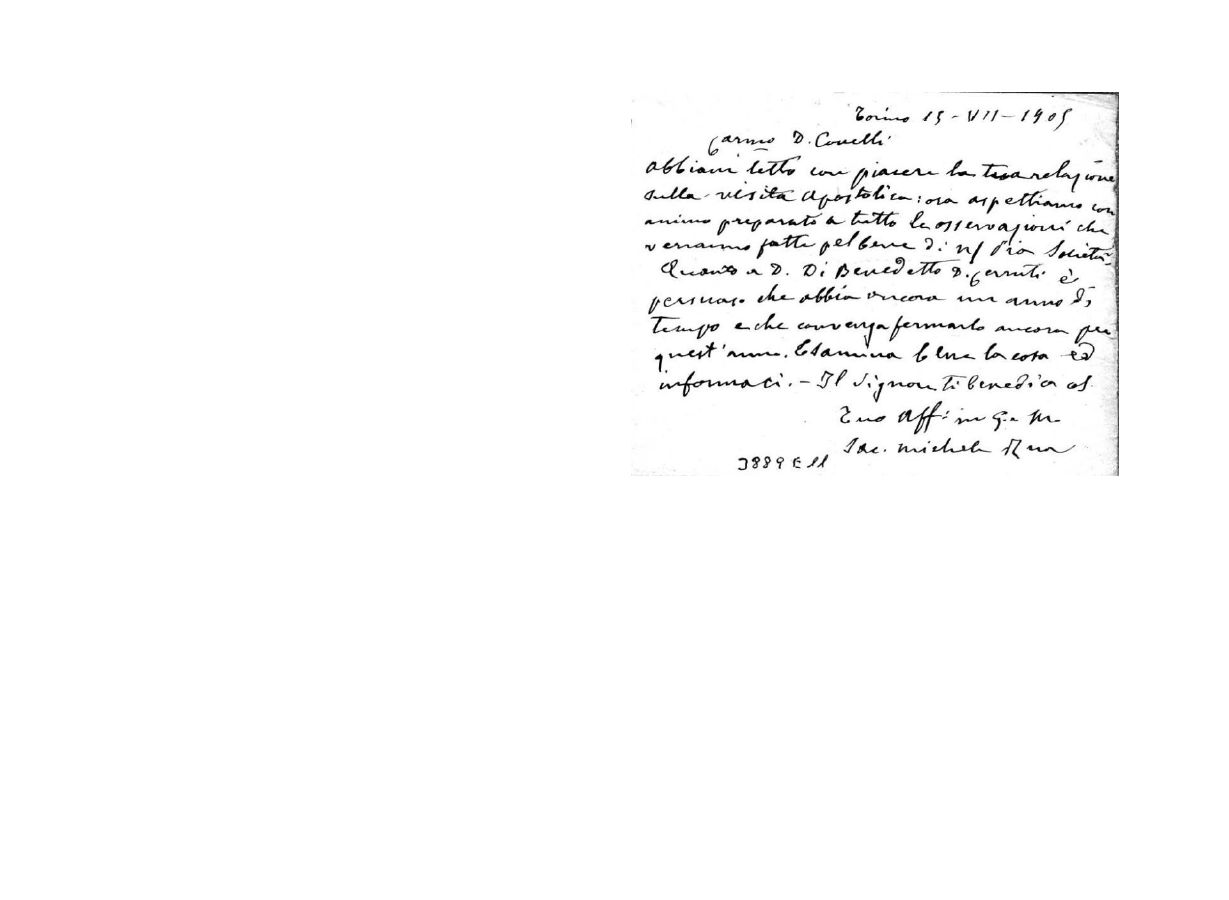 Torino 15-VII-1905
Carmo D. Conelli
Abbiam letto con piacere la tua relazione
sulla visita Apostolica: ora aspettiamo con
animo preparato a tutto le osservazioni che
verranno fatte pel bene di n/ Pia Società.
Quanto a D. Di Benedetto D. Cerruti è
persuaso che abbia ancora un anno di
tempo e che convenga fermarlo ancora per
quest'anno. Esamina bene la cosa ed
informaci. - Il Signore ti benedica
Tuo Aff: in G. e M.
Sac. Michele Rua
3889 E 11